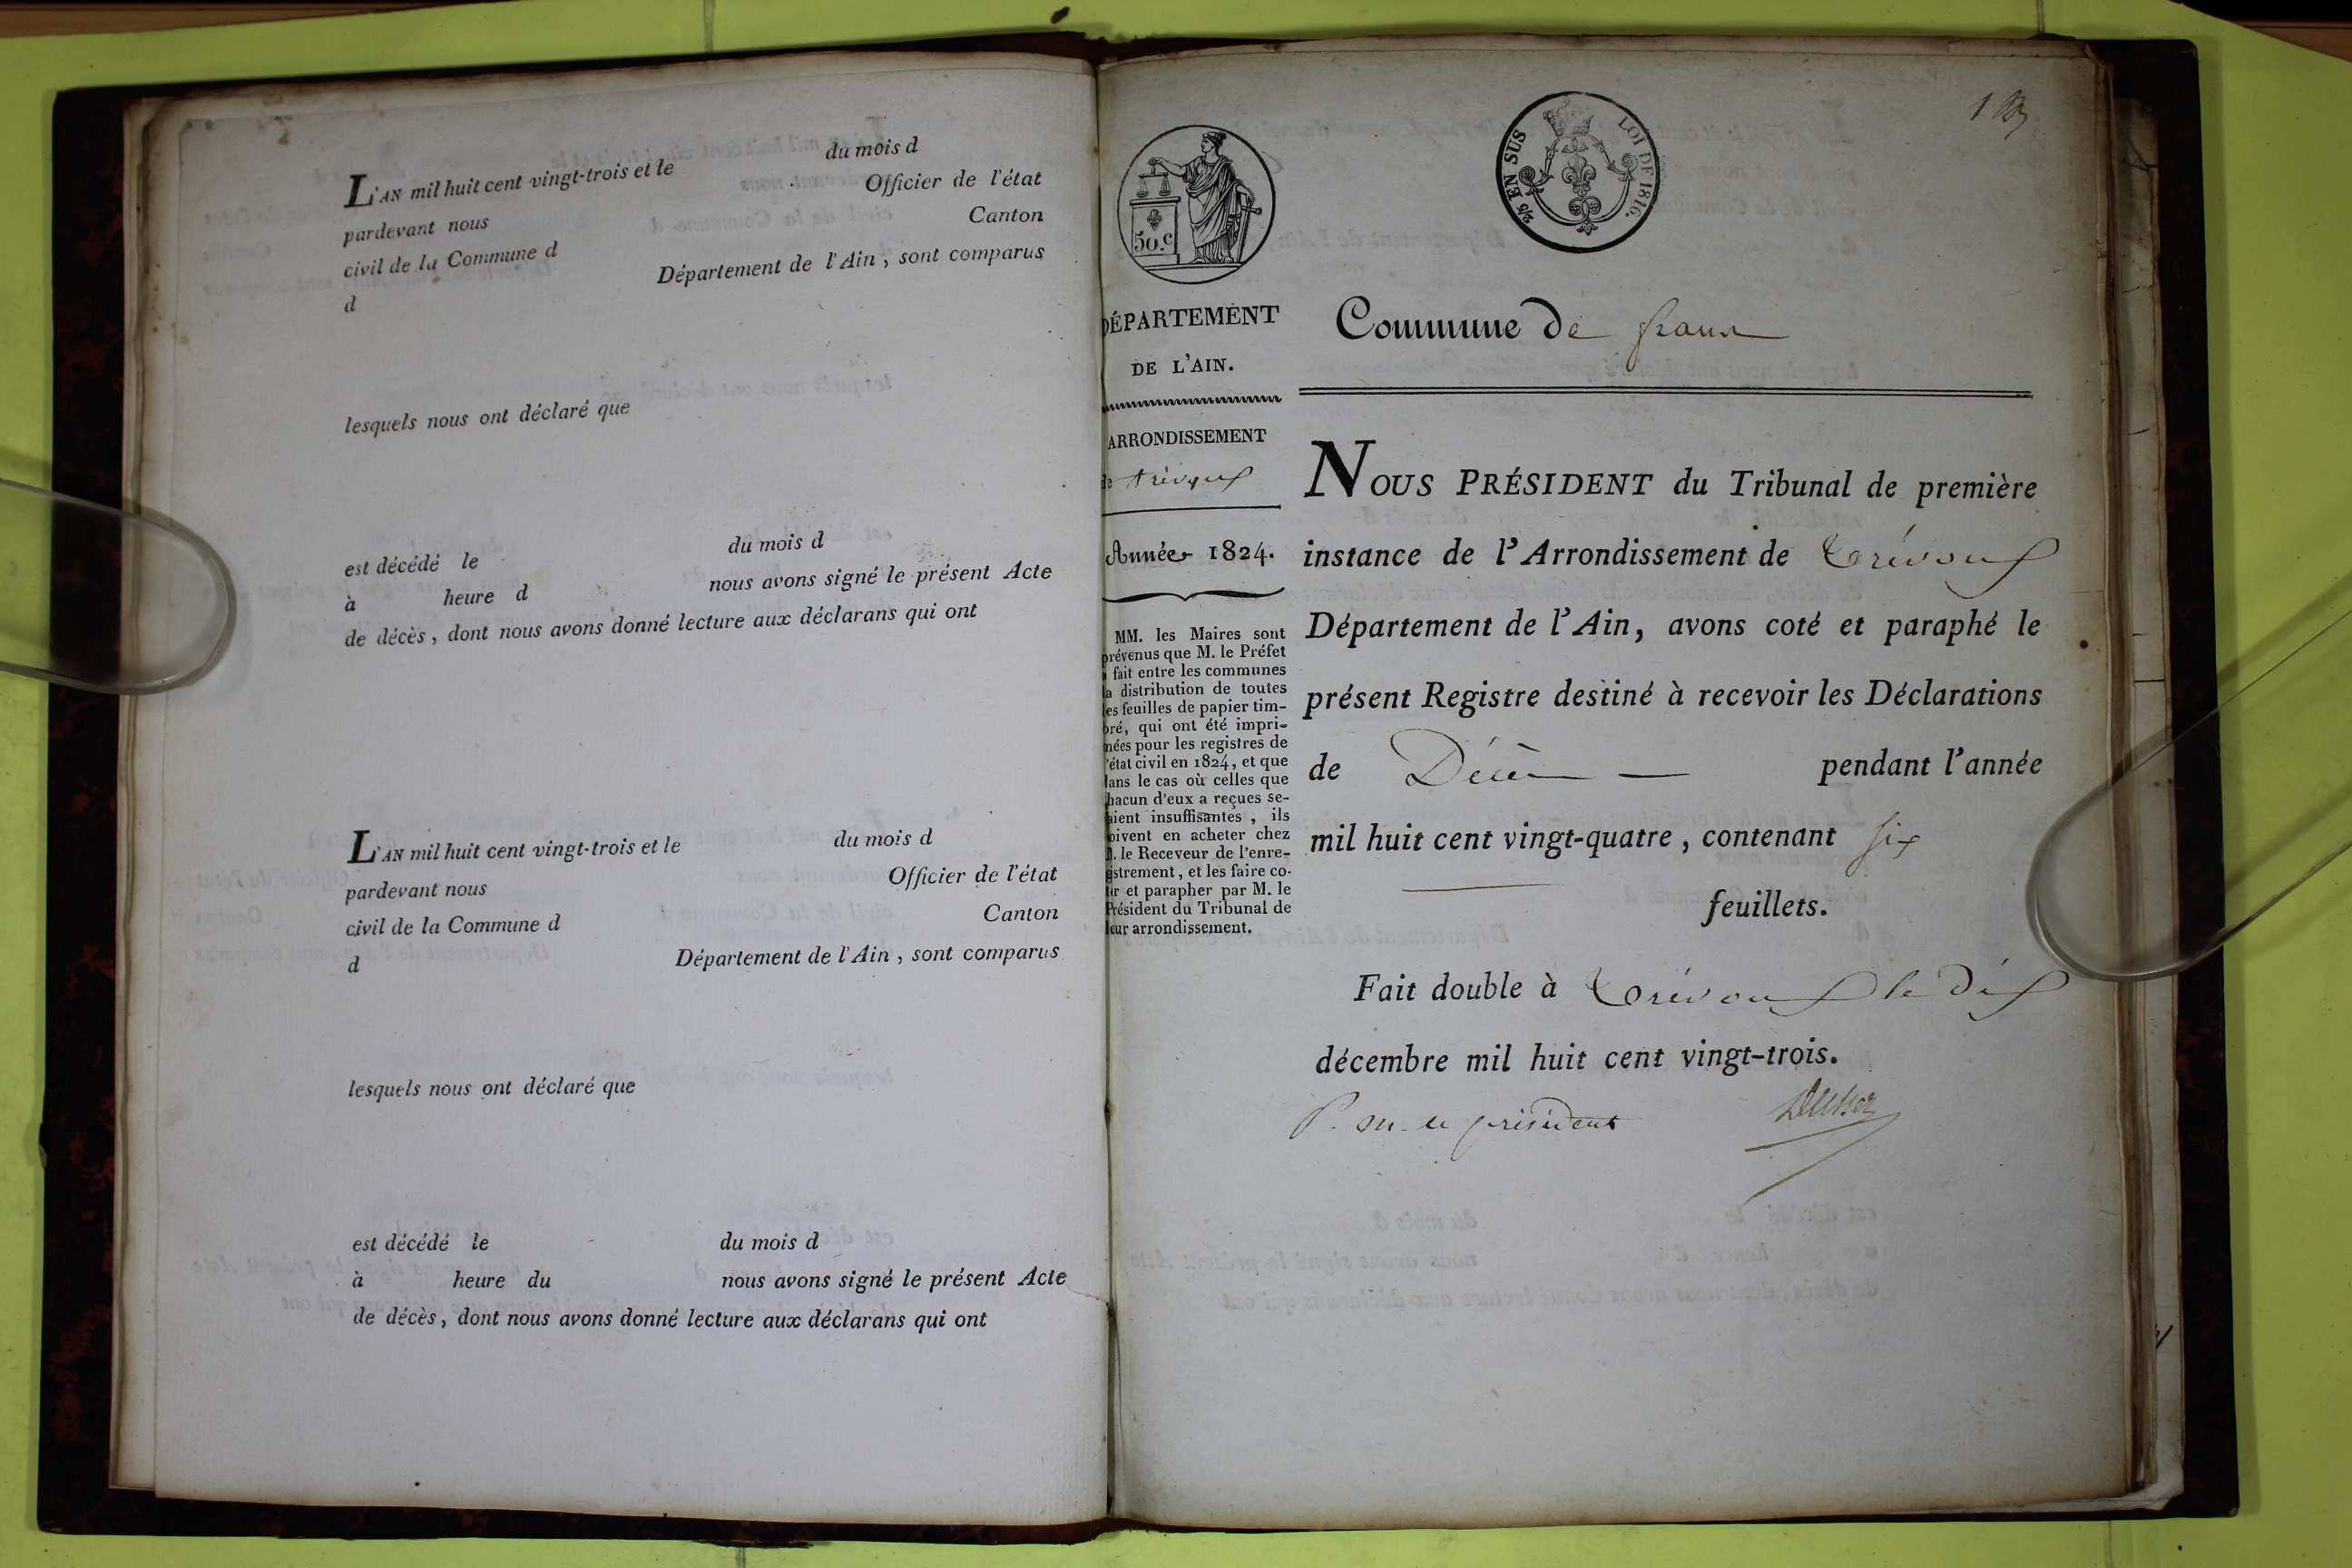 L'AN mil huit cent vingt-trois et le du mois d
pardevant nous Officier de l'état
civil de la Commune d Canton
d Département de l'Ain, sont comparus
lesquels nous ont déclaré que
est décédé le du mois d
à heure d nous avons signé le présent Acte
de décès, dont nous avons donné lecture aux déclarans qui ont
L'AN mil huit cent vingt-trois et le du mois d
pardevant nous Officier de l'état
civil de la Commune d Canton
d Département de l'Ain, sont comparus
lesquels nous ont déclaré que
est décédé le du mois d
à heure du nous avons signé le présent Acte
de décès, dont nous avons donné lecture aux déclarans qui ont
50.c
DÉPARTEMENT
DE L'AIN.
ARRONDISSEMENT
de trévoux
Année 1824.
MM. les Maires sont
prévenus que M. le Préfet
a fait entre les communes
la distribution de toutes
les feuilles de papier tim-
bré, qui ont été impri-
mées pour les registres de
l'état civil en 1824, et que
dans le cas où celles que
chacun d'eux a reçues se-
raient insuffisantes, ils
doivent en acheter chez
M. le Receveur de l'enre-
gistrement, et les faire co-
ter et parapher par M. le
Président du Tribunal de
leur arrondissement.
2/5 EN SUS
LOI DE 1816.
1
Commune de frans
NOUS PRÉSIDENT du Tribunal de première
instance de l'Arrondissement de trévoux
Département de l'Ain, avons coté et paraphé le
présent Registre destiné à recevoir les Déclarations
de Décès pendant l'année
mil huit cent vingt-quatre, contenant six
feuillets.
Fait double à trévoux le dix
décembre mil huit cent vingt-trois.
P. M. le président